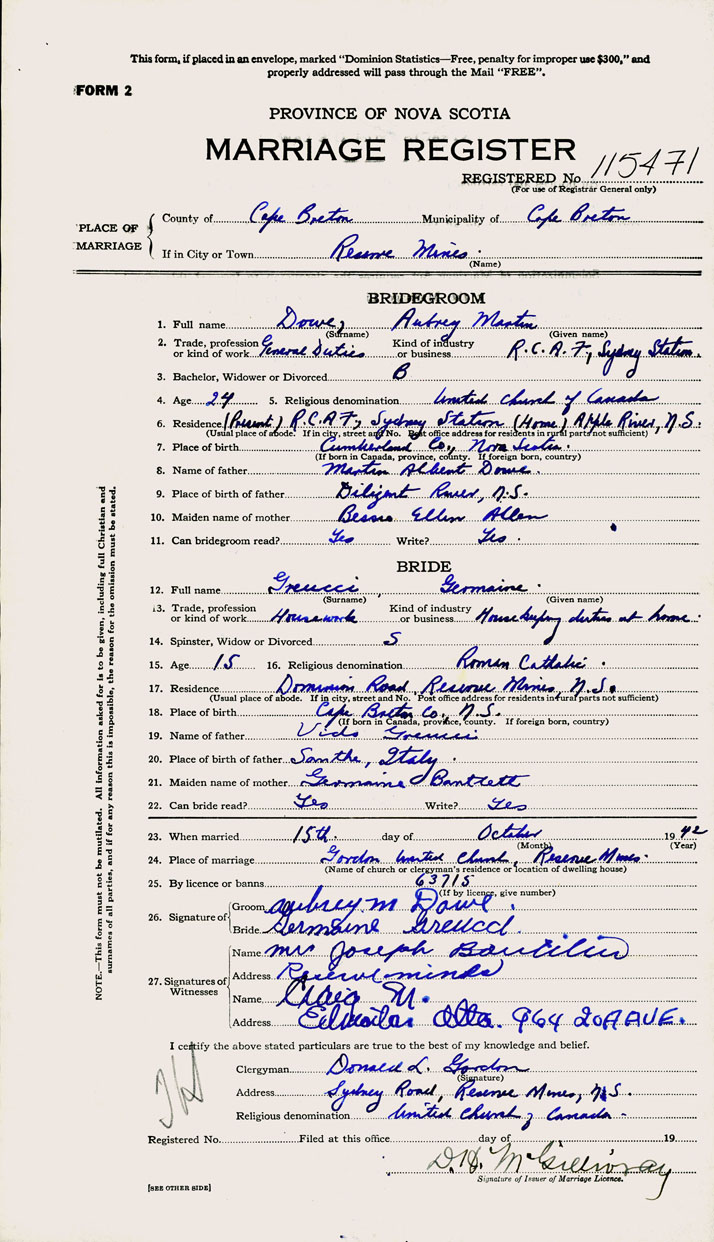 This form, if placed in an envelope, marked "Dominion Statistics—Free, penalty for improper use $300," and
properly addressed will pass through the Mail "FREE".
FORM 2
PROVINCE OF NOVA SCOTIA
MARRIAGE REGISTER
REGISTERED No. 115471
(For use of Registrar General only)
PLACE OF MARRIAGE
County of Cape Breton Municipality of Cape Breton
If in City or Town Reserve Mines.
(Name)
BRIDEGROOM
1. Full name Dowe, Aubrey Martin
(Surname) (Given name)
2. Trade, profession or kind of work General Duties Kind of industry or business R.C.A.F., Sydney Station.
3. Bachelor, Widower or Divorced B
4. Age 24 5. Religious denomination United Church of Canada
6. Residence (Present) R.C.A.F., Sydney Station (Home) Apple River, N.S.
(Usual place of abode. If in city, street and No. Post office address for residents in rural parts not sufficient)
7. Place of birth Cumberland Co., Nova Scotia.
(If born in Canada, province, county. If foreign born, country)
8. Name of father Martin Albert Dowe.
9. Place of birth of father Diligent River, N.S.
10. Maiden name of mother Bessie Ellen Allen
11. Can bridegroom read? Yes Write? Yes.
BRIDE
12. Full name Greucci, Germaine.
(Surname) (Given name)
13. Trade, profession or kind of work Housework Kind of industry or business Housekeeping duties at home.
14. Spinster, Widow or Divorced S
15. Age 15 16. Religious denomination Roman Catholic.
17. Residence Dominion Road, Reserve Mines, N.S.
(Usual place of abode. If in city, street and No. Post office address for residents in rural parts not sufficient)
18. Place of birth Cape Breton Co., N.S.
(If born in Canada, province, county. If foreign born, country)
19. Name of father Greucci
20. Place of birth of father Italy.
21. Maiden name of mother Germaine
22. Can bride read? Yes Write? Yes
23. When married 15th. day of October 1942
(Month) (Year)
24. Place of marriage Gordon United Church, Reserve Mines.
(Name of church or clergyman's residence or location of dwelling house)
25. By licence or banns 63715
(If by licence, give number)
26. Signature of Groom Aubrey M Dowe.
Bride Germaine Greucci.
27. Signatures of Witnesses
Name Mrs Joseph
Address Reserve minds
Name Craig M.
Address Alta. 964 20A AVE.
I certify the above stated particulars are true to the best of my knowledge and belief.
Clergyman Donald L. Gordon
(Signature)
Address Sydney Road, Reserve Mines, N.S.
Religious denomination United Church of Canada.
Registered No. Filed at this office day of 19
D.H. McGillivray
Signature of Issuer of Marriage Licence.
[SEE OTHER SIDE]
NOTE.—This form must not be mutilated. All information asked for is to be given, including full Christian and
surnames of all parties, and if for any reason this is impossible, the reason for the omission must be stated.